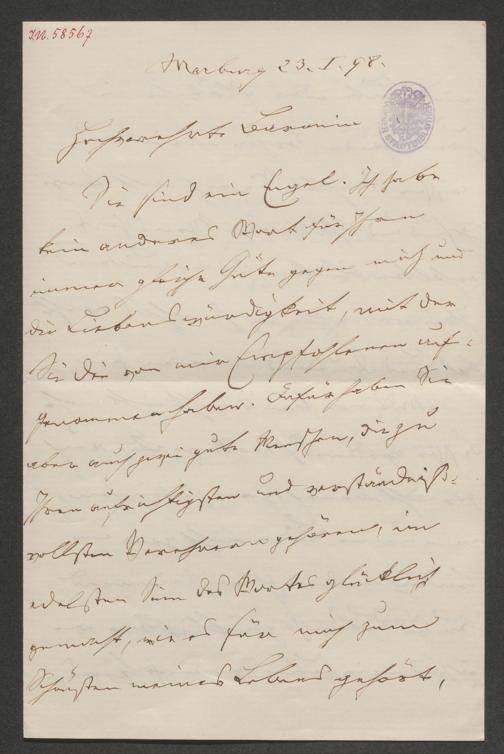 I.N. 58567
Marburg 23. I. 98.
Hochverehrte Baronin
Sie sind ein Engel. Ich habe
kein anderes Wort für Ihre
immer gleiche Güte gegen mich und
die Liebenswürdigkeit, mit der
Sie die von mir Empfohlenen auf-
genommen haben. Dafür haben Sie
aber auch zwei gute Menschen, die zu
Ihren aufrichtigsten und verständniß-
vollsten Verehrern gehören, im
edelsten Sinn des Wortes glücklich
gemacht, wie es für mich zum
Schönsten meines Lebens gehört,